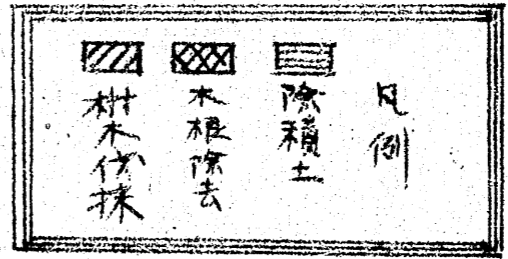 凡例
除積土
木根除去
樹木伐採